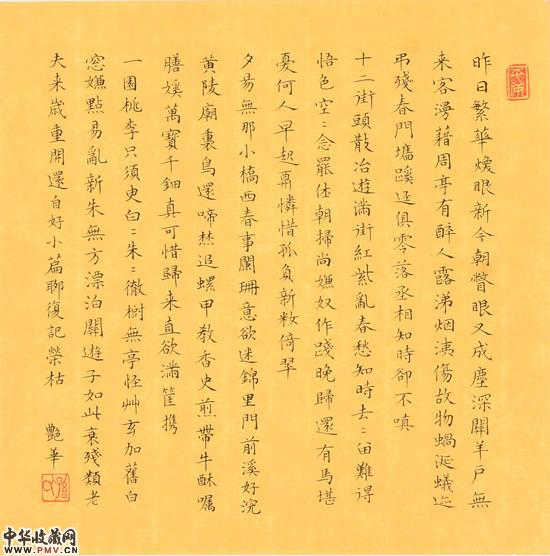 昨日繁華煖眼新今朝瞥眼又成塵深關羊戶無
来客漫藉周亭有醉人露涕烟洟傷故物蝸涎蟻迹
弔殘春門墻蹊逕俱零落丞相知時卻不嗔
十二街頭散冶遊滿街紅紫亂春愁知時去〻留難得
悟色空〻念罷休朝掃尚嫌奴作踐晚歸還有馬堪
憂何人早起肩憐惜孤負新粧倚翠
夕昜無那小橋西春事闌珊意欲迷錦里門前溪好浣
黃陵廟裏鳥還啼焚追螺甲教香史煎帶牛酥囑
膳媛萬寶千鈿真可惜歸来直欲滿筐携
一園桃李只須臾白〻朱〻徹樹無亭怪艸玄加舊白
窓嫌點易亂新朱無方漂泊關遊子如此衰殘類老
夫来歲重開還自好小篇聊復記榮枯
艷華
中华收藏网
WWW.PMV.CN